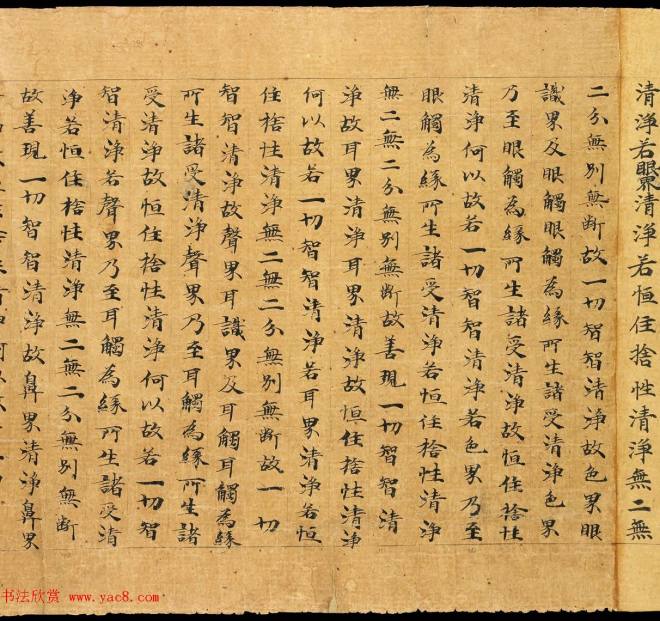 清淨若眼界清淨若恒住捨性清淨無二無
二分無別無斷故一切智智清淨故色界眼
識界及眼觸眼觸為緣所生諸受清淨色界
乃至眼觸為緣所生諸受清淨故恒住捨性
清淨何以故若一切智智清淨若色界乃至
眼觸為緣所生諸受清淨若恒住捨性清淨
無二無二分無別無斷故善現一切智智清
淨故耳界清淨耳界清淨故恒住捨性清淨
何以故若一切智智清淨若耳界清淨若恒
住捨性清淨無二無二分無別無斷故一切
智智清淨故聲界耳識界及耳觸耳觸為緣
所生諸受清淨聲界乃至耳觸為緣所生諸
受清淨故恒住捨性清淨何以故若一切智
智清淨若聲界乃至耳觸為緣所生諸受清
淨若恒住捨性清淨無二無二分無別無斷
故善現一切智智清淨故鼻界清淨鼻界
书法欣赏 www.yac8.com